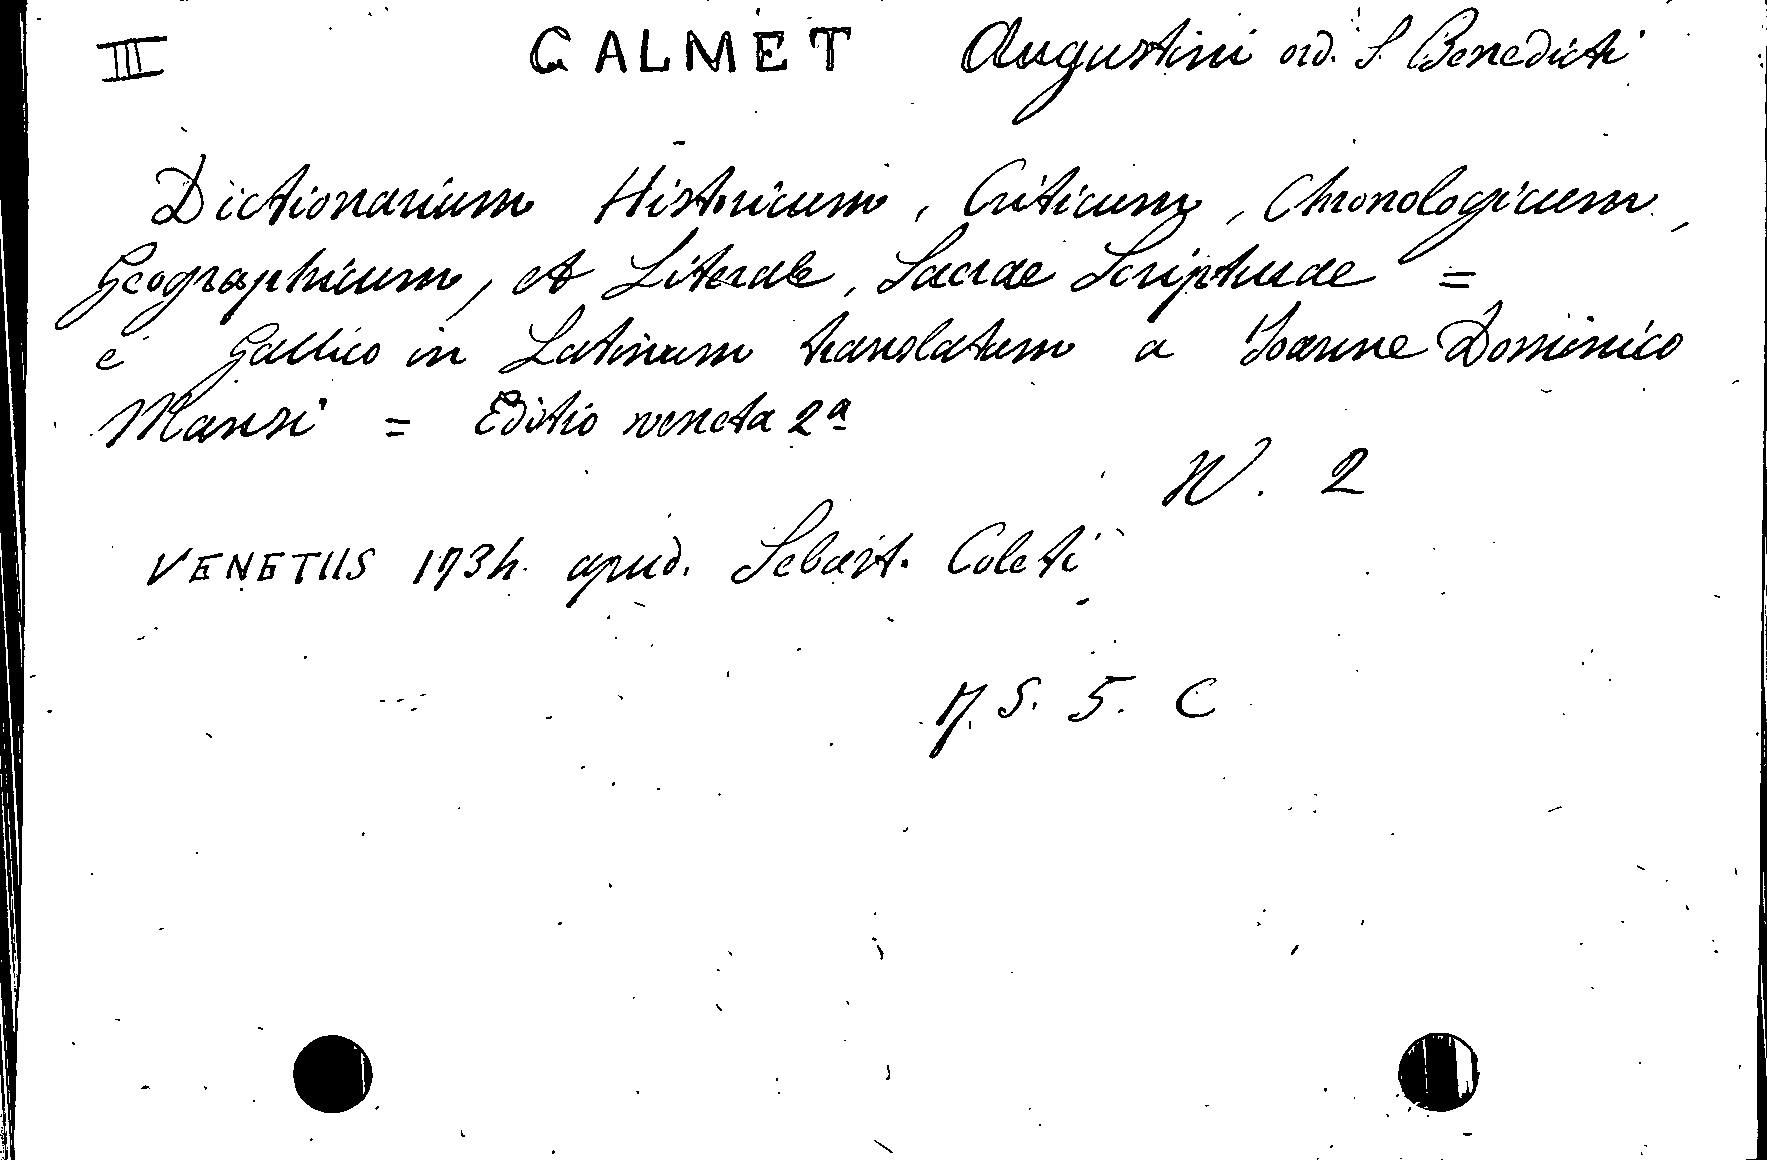 III CALMET Augustini ord. S. Benedicti
Dictionarium Historicum, Criticum, Chronologicum,
Geographicum, et Literale, Sacrae Scripturae =
e Gallico in Latinum translatum a Ioanne Dominico
Mansi = Editio veneta 2ª
N. 2
VENETIIS 1734. apud. Sebast. Coleti
17. S. 5. C